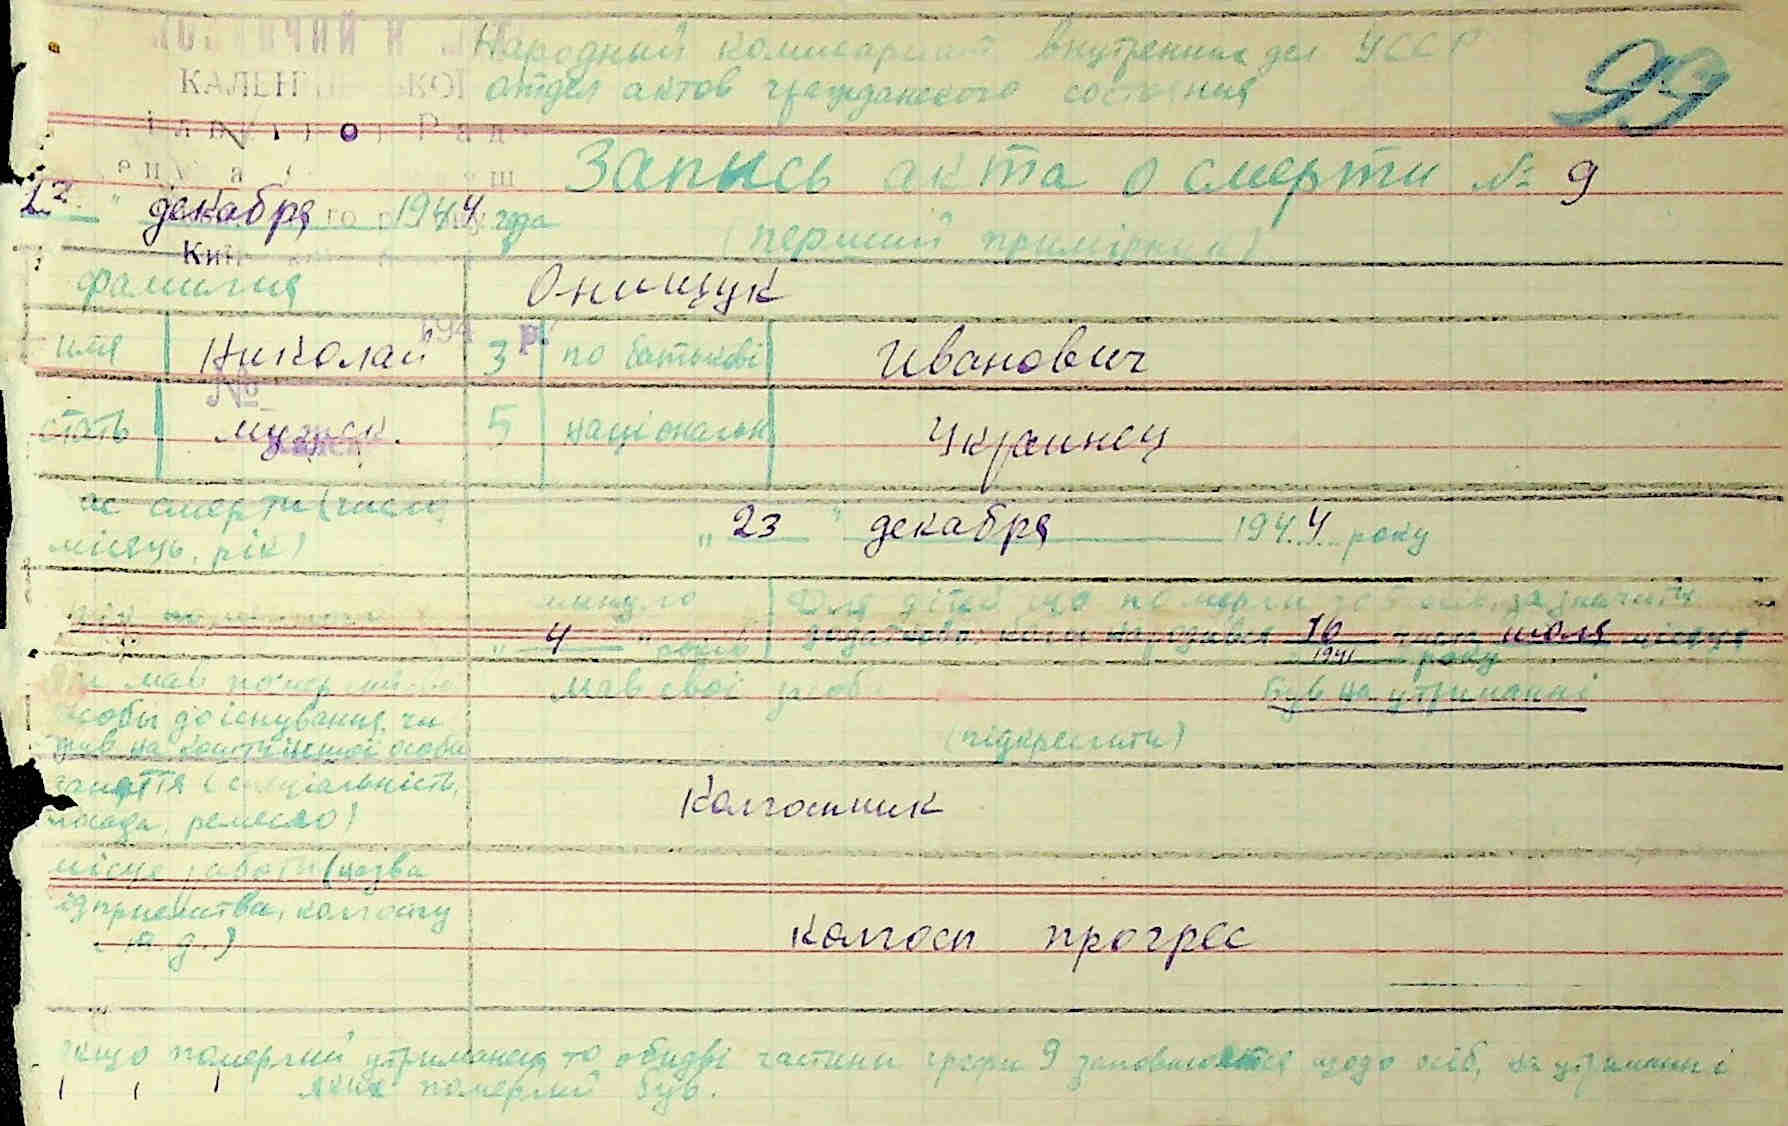 Народный комисариат внутренних дел УССР
отдел актов гражданского состояния
99
Запись акта о смерти № 9
декабря 1944 года
(перший примірник)
фамилия Онищук
имя Николай 3 по батькові Иванович
стать мужск. 5 національн Украинец
смерти (число,
місяць, рік) „ 23 " декабря 1944 року
минуло Для дітей що померли до 5 років, зазначити
„ 4 " років додатково: коли народився 16 числа июля місяця
1941 року
мав свої був на утриманні
особы до існування, чи
(підкреслити)
заняття (спеціальність,
посада, ремесло) Колгошник
місце работи (назва
підприємства, колгоспу
и т. д.) колгосп прогрес
якщо померлий утриманець то обидві частини графи 9 заповнюются щодо осіб, на утриманні
яких померлий був.